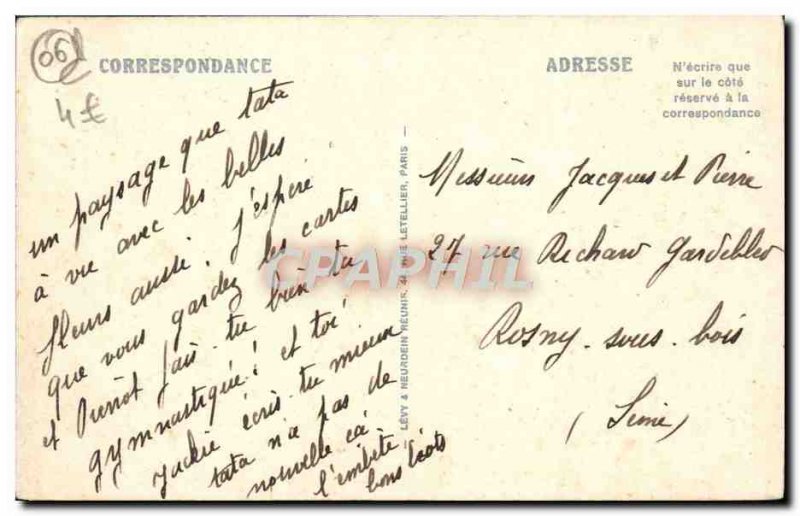 06
4€
CORRESPONDANCE
un paysage que tata
à vu avec les belles
fleurs aussi. J'espère
que vous gardez les cartes
et Pierrot fais-tu bien ta
gymnastique! et toi
Jackie écris-tu mieux
tata n'a pas de
nouvelle ça
l'embête
bons
CPAPHIL
LÉVY & NEURDEIN RÉUNIS, 44, RUE LETELLIER, PARIS
ADRESSE
N'écrire que
sur le côté
réservé à la
correspondance
Messieurs Jacques et Pierre
27 rue Richard
Rosny-sous-bois
(Seine)